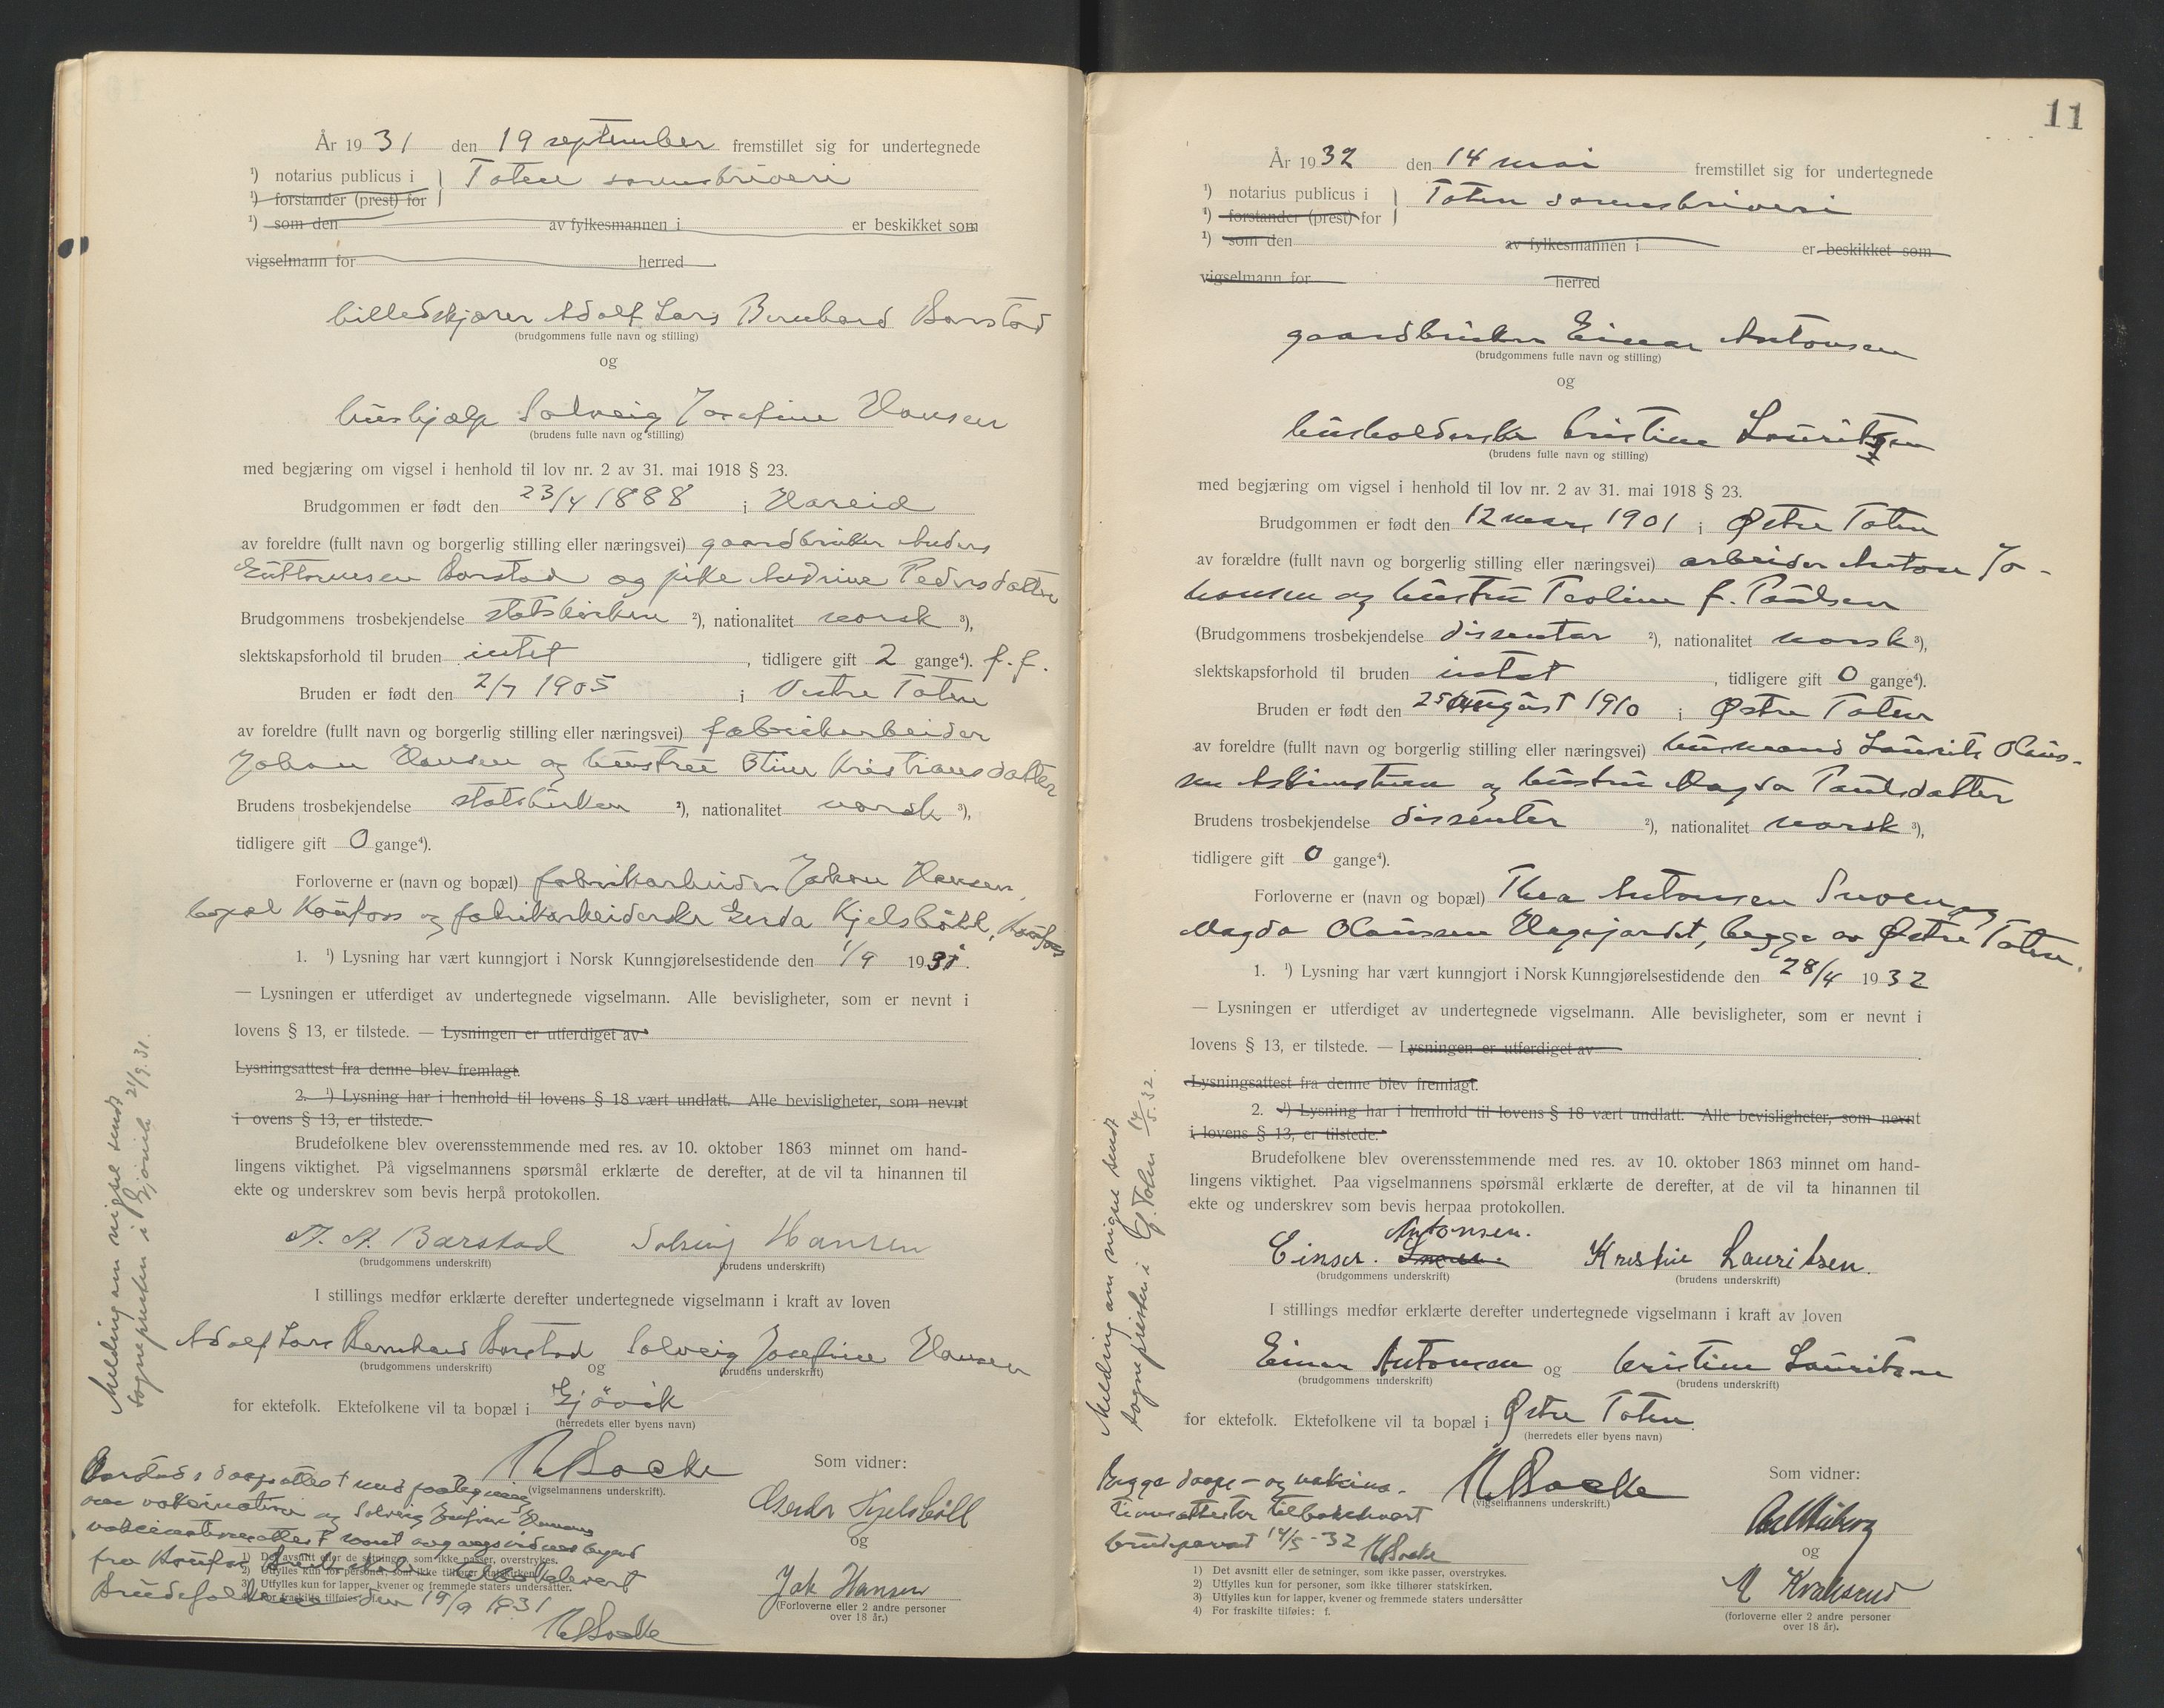 År 1931 den 19 september fremstillet sig for undertegnede
¹) notarius publicus i } Toten sorenskriveri
¹) forstander (prest) for
¹) som den av fylkesmannen i er beskikket som
vigselmann for herred
billedskjærer Adolf Lars Bernhard Barstad
(brudgommens fulle navn og stilling)
og
hushjælp Solveig Josefine Hansen
(brudens fulle navn og stilling)
med begjæring om vigsel i henhold til lov nr. 2 av 31. mai 1918 § 23.
Brudgommen er født den 23/4 1888 i Hareid
av foreldre (fullt navn og borgerlig stilling eller næringsvei) gaardbruker Anders
Guttormsen Barstad og pike Andrine Pedersdatter
Brudgommens trosbekjendelse statskirken ²), nationalitet norsk ³),
slektskapsforhold til bruden intet , tidligere gift 2 gange⁴). f. f.
Bruden er født den 2/7 1905 i Vestre Toten
av foreldre (fullt navn og borgerlig stilling eller næringsvei) fabrikarbeider
Johan Hansen og hustru Otine Kristiansdatter
Brudens trosbekjendelse statskirken ²), nationalitet norsk ³),
tidligere gift 0 gange⁴).
Forloverne er (navn og bopæl) fabrikarbeider Johan Hansen,
bopæl Raufoss og fabrikarbeiderske Gerda Kjelsbøll, Raufoss
1. ¹) Lysning har vært kunngjort i Norsk Kunngjørelsestidende den 1/9 1931.
— Lysningen er utferdiget av undertegnede vigselmann. Alle bevisligheter, som er nevnt i
lovens § 13, er tilstede. — Lysningen er utferdiget av
Lysningsattest fra denne blev fremlagt.
2. ¹) Lysning har i henhold til lovens § 18 vært undlatt. Alle bevisligheter, som nevnt
i ovens § 13, er tilstede.
Brudefolkene blev overensstemmende med res. av 10. oktober 1863 minnet om hand-
lingens viktighet. På vigselmannens spørsmål erklærte de derefter, at de vil ta hinannen til
ekte og underskrev som bevis herpå protokollen.
A. A. Barstad Solveig Hansen
(brudgommens underskrift) (brudens underskrift)
I stillings medfør erklærte derefter undertegnede vigselmann i kraft av loven
Adolf Lars Bernhard Barstad og Solveig Josefine Hansen
(brudgommens underskrift) (brudens underskrift)
for ektefolk. Ektefolkene vil ta bopæl i Gjövik
(herredets eller byens navn)
(vigselmannens underskrift).
Som vidner:
Gerda Kjelsböll
og
Joh Hansen
(Forloverne eller 2 andre personer
over 18 år.)
Barstads daapsattest med paategning
om vaksination og Solveig Josefine Hansens
vaksinationsattest samt
fra Raufoss tilbakelevert
Brudefolkene den 19/9 1931
1) Det avsnitt eller de setninger, som ikke passer, overstrykes.
2) Utfylles kun for personer, som ikke tilhører statskirken.
3) Utfylles kun for lapper, kvener og fremmede staters undersåtter.
4) For fraskilte tilføies: f.
Melding om vigsel sendt
sognepresten i Gjövik 21/9. 31.
11
År 1932 den 14 mai fremstillet sig for undertegnede
¹) notarius publicus i } Toten sorenskriveri
¹) forstander (prest) for
¹) som den av fylkesmannen i er beskikket som
vigselmann for herred
gaardbruker Einar Antonsen
(brudgommens fulle navn og stilling)
og
husholderske Kristine Lauritsen
(brudens fulle navn og stilling)
med begjæring om vigsel i henhold til lov nr. 2 av 31. mai 1918 § 23.
Brudgommen er født den 12 mars 1901 i Østre Toten
av forældre (fullt navn og borgerlig stilling eller næringsvei) arbeider Anton Jo-
hansen og hustru Teoline f. Paulsen
(Brudgommens trosbekjendelse dissenter ²), nationalitet norsk ³),
slektskapsforhold til bruden intet , tidligere gift 0 gange⁴).
Bruden er født den 25 august 1910 i Østre Toten
av foreldre (fullt navn og borgerlig stilling eller næringsvei) husmand Laurits Olaus-
sen og hustru Magda Paulsdatter
Brudens trosbekjendelse dissenter ²), nationalitet norsk ³),
tidligere gift 0 gange⁴).
Forloverne er (navn og bopæl) Thea Antonsen og
Magda Olaussen Hagejordet, begge av Østre Toten.
1. ¹) Lysning har vært kunngjort i Norsk Kunngjørelsestidende den 28/4 1932
— Lysningen er utferdiget av undertegnede vigselmann. Alle bevisligheter, som er nevnt i
lovens § 13, er tilstede. — Lysningen er utferdiget av
Lysningsattest fra denne blev fremlagt.
2. ¹) Lysning har i henhold til lovens § 18 vært undlatt. Alle bevisligheter, som nevnt
i lovens § 13, er tilstede.
Brudefolkene blev overensstemmende med res. av 10. oktober 1863 minnet om hand-
lingens viktighet. Paa vigselmannens spørsmål erklærte de derefter, at de vil ta hinannen til
ekte og underskrev som bevis herpaa protokollen.
Einar. Antonsen. Kristine Lauritsen.
(brudgommens underskrift) (brudens underskrift)
I stillings medfør erklærte derefter undertegnede vigselmann i kraft av loven
Einar Antonsen og Kristine Lauritsen
(brudgommens underskrift) (brudens underskrift)
for ektefolk. Ektefolkene vil ta bopæl i Østre Toten.
(herredets eller byens navn)
(vigselmannens underskrift.)
Som vidner:
og
(forloverne eller 2 andre personer
over 18 år).
Begge daaps- og vaksina-
tionsattester tilbakelevert
brudeparet 14/5-32
1) Det avsnitt eller de setninger, som ikke passer, overstrykes.
2) Utfylles kun for personer, som ikke tilhører statskirken.
3) Utfylles kun for lapper, kvener og fremmede staters undersåtter
4) For fraskilte tilføies: f.
Melding om vigsel sendt
sognepresten i Ø. Toten 14/5. 32.